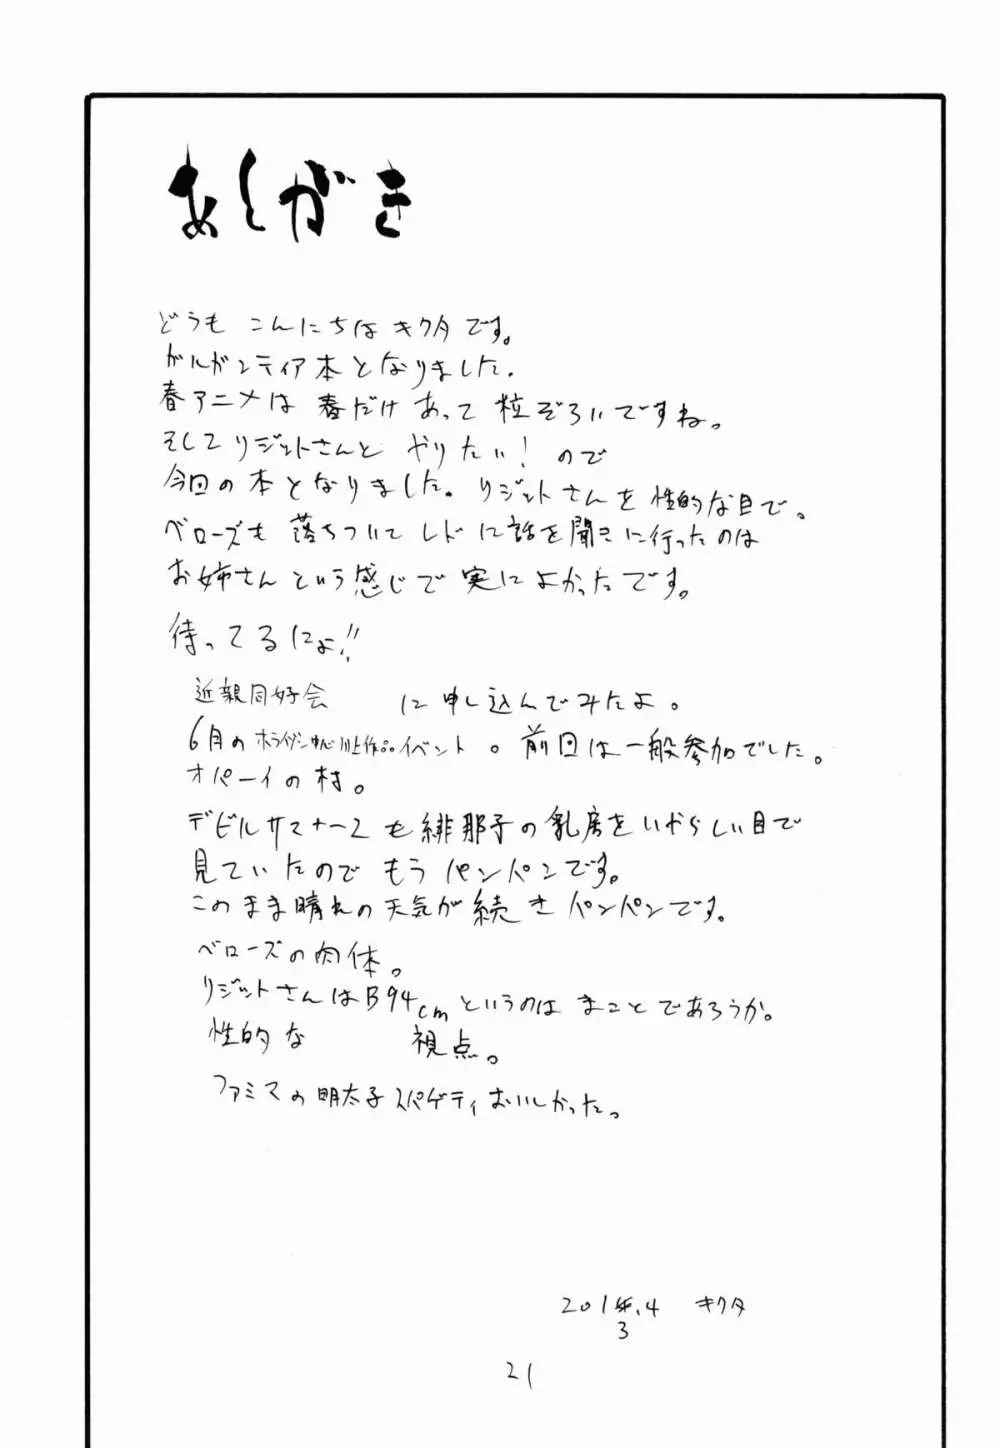 あとがき
どうも こんにちは キクタです。
ガルガンティア本となりました。
春アニメは春だけあって粒ぞろいですね。
そしてリジットさんと やりたい!ので
今回の本となりました。リジットさんを性的な目で。
ベローズも 落ちついてレドに話を聞きに行ったのは
お姉さんという感じで実によかったです。
待ってるにょ!!
近親同好会 に申し込んでみたよ。
6月のホライゾン中心川上作品イベント。前回は一般参加でした。
オパーイの村。
デビルサマナー2も緋那子の乳房をいやらしい目で
見ていたのでもうパンパンです。
このまま晴れの天気が続きパンパンです。
ベローズの肉体。
リジットさんはB94cmというのは まことであろうか。
性的な 視点。
ファミマの明太子スパゲティおいしかった。
201年.4 キクタ
3
21